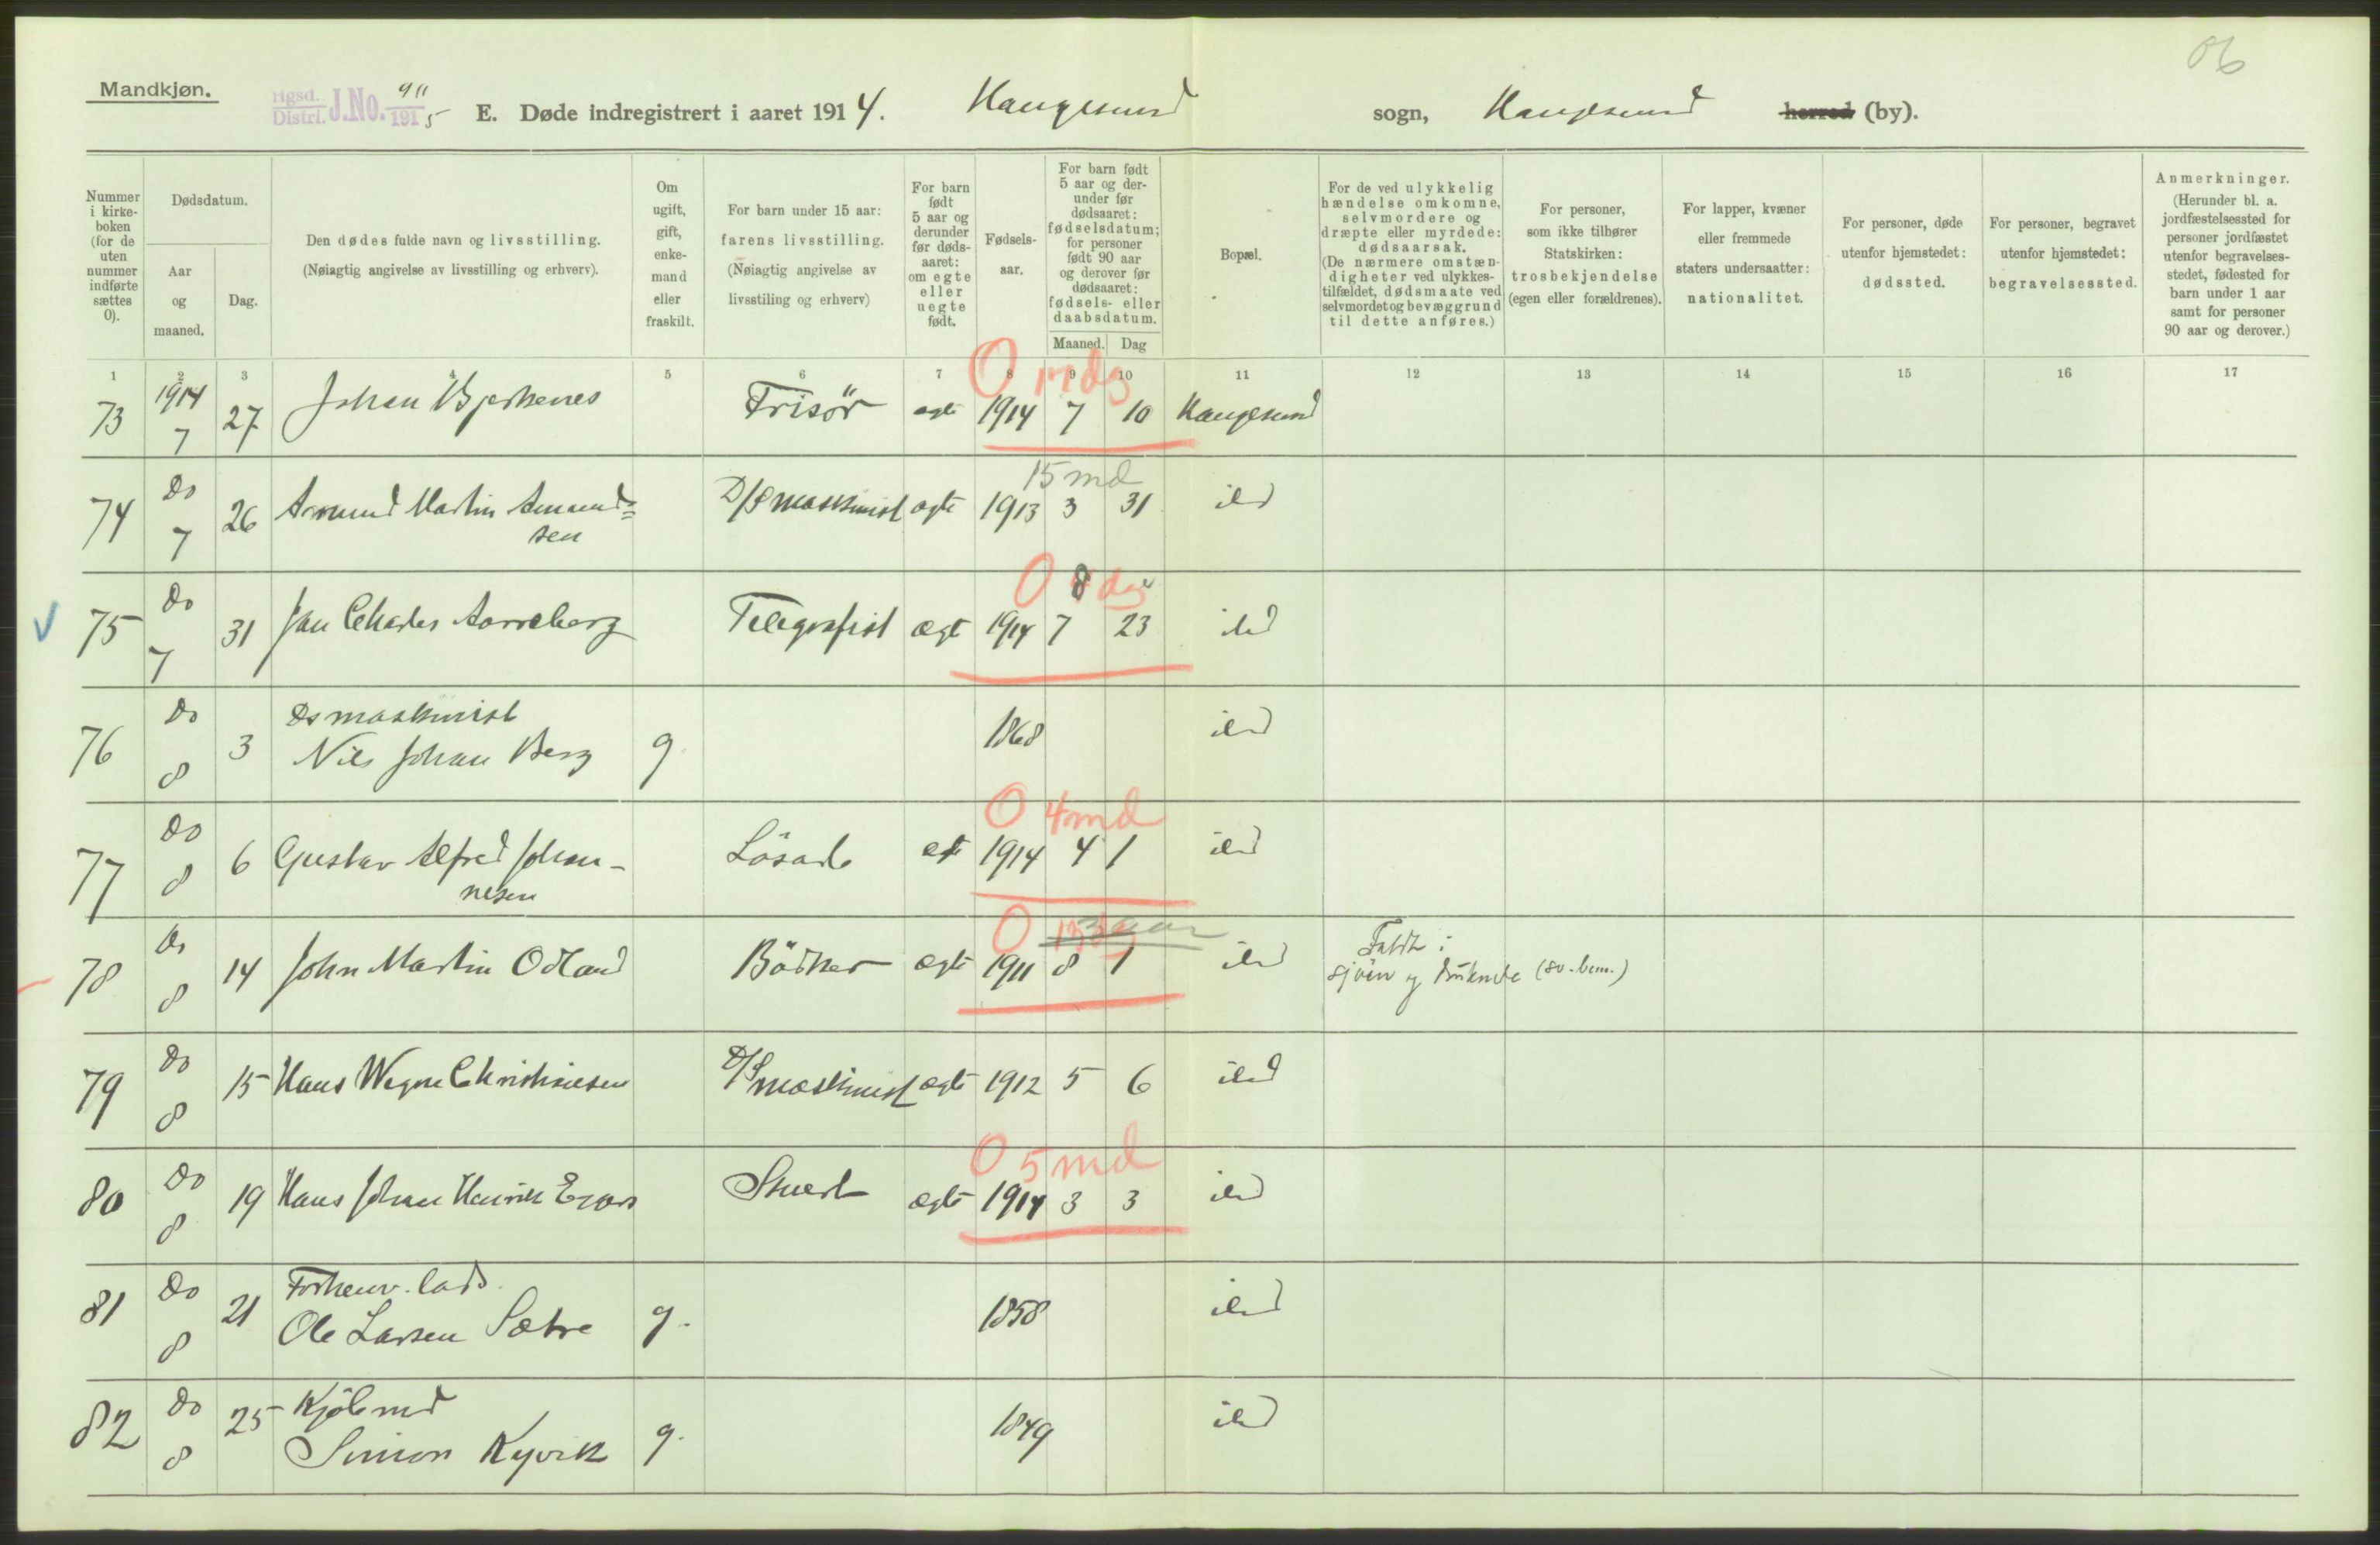 Mandkjøn.
Hgsd. Distri. J.No. 911 1915
E. Døde indregistrert i aaret 1914. Haugesund sogn, Haugesund herred (by).
06
Nummer i kirke-boken (for de uten nummer indførte sættes 0).
Dødsdatum.
Aar og maaned.
Dag.
Den dødes fulde navn og livsstilling.
(Nøiagtig angivelse av livsstilling og erhverv).
Om ugift, gift, enke-mand eller fraskilt.
For barn under 15 aar: farens livsstilling.
(Nøiagtig angivelse av livsstiling og erhverv)
For barn født 5 aar og derunder før døds-aaret: om egte eller uegte født.
Fødsels-aar.
For barn født 5 aar og der-under før dødsaaret: fødselsdatum; for personer født 90 aar og derover før dødsaaret: fødsels- eller daabsdatum.
Maaned. Dag
Bopæl.
For de ved ulykkelig hændelse omkomne, selvmordere og dræpte eller myrdede: dødsaarsak.
(De nærmere omstæn-digheter ved ulykkes-tilfældet, dødsmaate ved selvmordet og bevæggrund til dette anføres.)
For personer, som ikke tilhører Statskirken: trosbekjendelse (egen eller forældrenes).
For lapper, kvæner eller fremmede staters undersaatter: nationalitet.
For personer, døde utenfor hjemstedet: dødssted.
For personer, begravet utenfor hjemstedet: begravelsessted.
Anmerkninger.
(Herunder bl. a. jordfæstelsessted for personer jordfæstet utenfor begravelses-stedet, fødested for barn under 1 aar samt for personer 90 aar og derover.)
1 2 3 4 5 6 7 8 9 10 11 12 13 14 15 16 17
0 17 dg
73 1914 7 27 Johan Bjerkenes Frisör egte 1914 7 10 Haugesund
15 md
74 Do 7 26 Amund Martin Amund=
sen D/S maskinist egte 1913 3 31 ild
0 8 dg
75 Do 7 31 Jan Charles Aarreberg Telegrafist ægte 1914 7 23 ild
76 Do 8 3 Ds maskinist
Nils Johan Berg g. 1868 ild
0 4 md
77 Do 8 6 Gustav Alfred Johan-
nesen Lösarb egt 1914 4 1 ild
0 3 aar
78 Do 8 14 John Martin Odland Bödker ægte 1911 8 1 ild Faldt i
sjöen og druknede (sv. bem.)
79 Do 8 15 Hans Wegne Christiansen D/S maskinist ægte 1912 5 6 ild
0 5 md
80 Do 8 19 Hans Johan Henrik Evers Stuert ægte 1914 3 3 ild
81 Do 8 21 Forhenv. lods
Ole Larsen Sætre g. 1858 ild
82 Do 8 25 Kjöbmd
Simon Kyvik g. 1849 ild